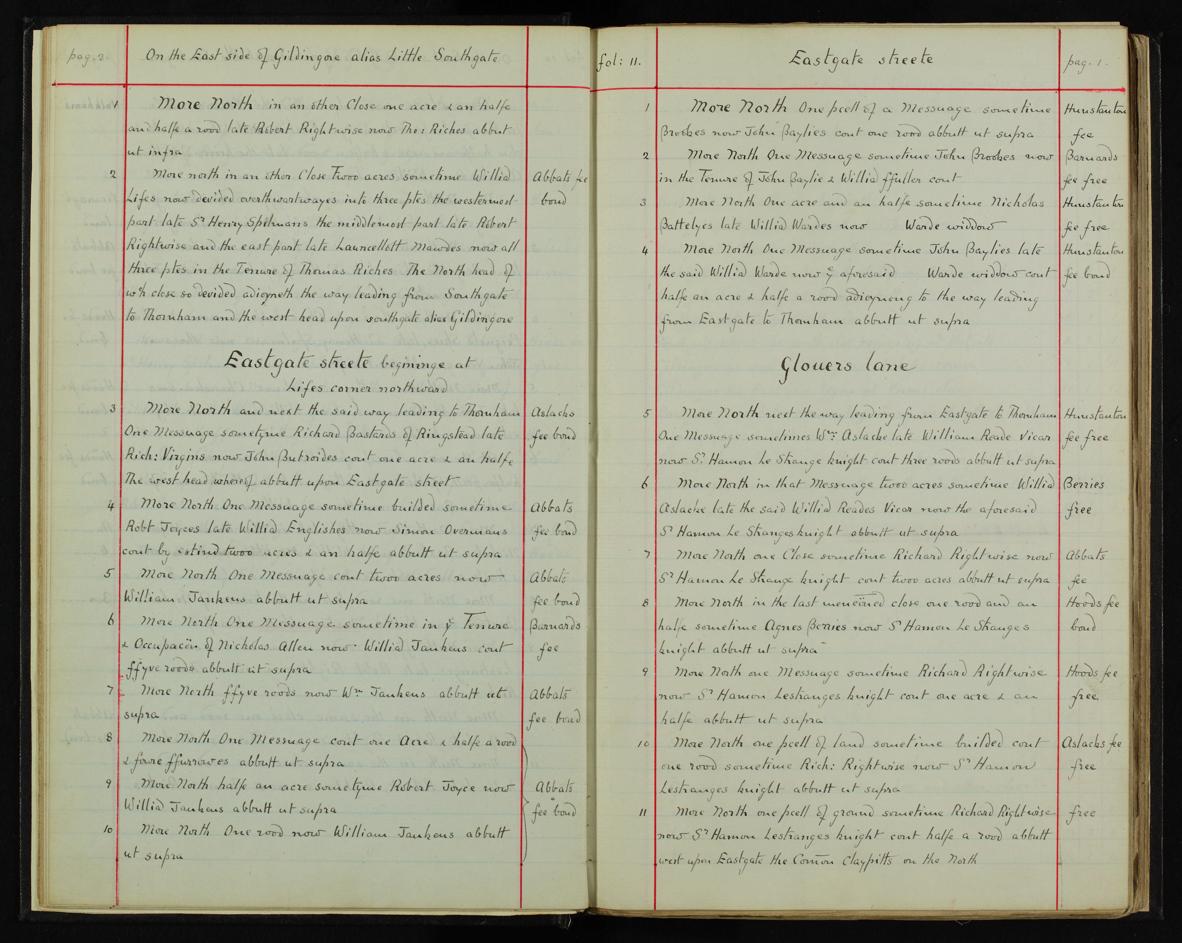 pag. 2.
On the East side of Gildingore alias Little Southgate
1 More North in an other Close one acre & an halfe
and halfe a rood late Robert Rightwise now Tho: Riches abbut
ut infra
2 More north in an other Close Twoo acres sometime Willia Abbats fee
Lifes now devided overthwartwayes into three ptes the westermost bond
part late Sr Henry Spelmans the middlemost part late Robert
Rightwise and the east part late Launcellott Mawdes now all
three ptes in the Tenure of Thomas Riches The North head of
wch close so devided adioyneth the way leading from Southgate
to Thornham and the west head upon southgate alias Gildingore
Eastgate streete begininge at
Lifes corner northward
3 More North and next the said way leading to Thornham Aslacks
One Messuage sometyme Richard Bastards of Ringstead late fee bond
Rich: Virgins now John Butroides cont one acre & an halfe
The west head whereof abbutt upon Eastgate street
4 More North One Messuage sometime builded sometime Abbats
Robt Joyces late Willia Englishes now Simon Overmans fee bond
cont by estimd twoo acres & an halfe abbutt ut supra
5 More North One Messuage cont twoo acres now Abbats
William Jankens abbutt ut supra fee bond
6 More North One Messuage sometime in ye Tenure Barnards
& Occupacon of Nicholas Allen now Willia Jankens cont fee
ffyve roods abbutt ut supra
7 More North ffyve roods now Wm Jankens abbutt ut Abbats
supra fee bond
8 More North One Messuage cont one Acre & halfe a rood
& fowre ffurrowes abbutt ut supra
9 More North halfe an acre sometyme Robert Joyce now Abbats
Willia Jankens abbutt ut supra fee bond
10 More North One rood now William Jankens abbutt
ut supra
fol: 11.
Eastgate streete
pag. 1.
1 More North One pcell of a Messuage sometime Hunstanton
Brookes now John Baylies cont one rood abbutt ut supra fee
2 More North One Messuage sometime John Brookes now Barnards
in the Tenure of John Baylie & Willia ffuller cont fee free
3 More North One acre and an halfe sometime Nicholas Hunstanton
Battelyes late Willia Wardes now Warde widdow fee free
4 More North One Messuage sometime John Baylies late Hunstanton
the said Willia Warde now ye aforesaid Warde widdow cont fee bond
halfe an acre & halfe a rood adioyneng to the way leading
from Eastgate to Thornham abbutt ut supra
Glouers lane
5 More North next the way leading from Eastgate to Thornham Hunstanton
One Messuage sometimes Wm: Aslacke late William Reade Vicar fee free
now Sr Hamon Le Strange knight cont three roods abbutt ut supra
6 More North in that Messuage twoo acres sometime Willia Berries
Aslacke late the said Willia Reades Vicar now the aforesaid free
Sr Hamon Le Stranges knight abbutt ut supra
7 More North one Close sometime Richard Rightwise now Abbats
Sr Hamon Le Strange knight cont twoo acres abbutt ut supra fee
8 More North in the last mencioned close one rood and an Hoods fee
halfe sometime Agnes Berries now Sr Hamon Le Stranges bond
knight abbutt ut supra
9 More North one Messuage sometime Richard Rightwise Hoods fee
now Sr Hamon Lestranges knight cont one acre & an free
halfe abbutt ut supra
10 More North one pcell of land sometime builded cont Aslacks fee
one rood sometime Rich: Rightwise now Sr Hamon free
Lestranges knight abbutt ut supra
11 More North one pcell of ground sometime Richard Rightwise free
now Sr Hamon Lestranges knight cont halfe a rood abbutt
west upon Eastgate the Comon Claypitts on the North